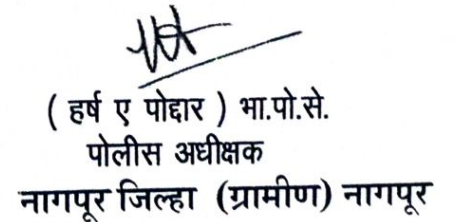 ( हर्ष ए पोद्दार ) भा.पो.से.
पोलीस अधीक्षक
नागपूर जिल्हा (ग्रामीण) नागपूर